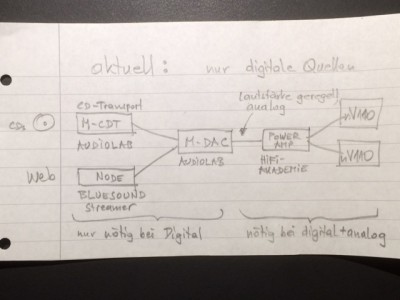 aktuell: nur digitale Quellen
lautstärke geregelt
analog
CD-Transport
CDs M-CDT
AUDIOLAB
M-DAC
AUDIOLAB
POWER
AMP
HIFI-
AKADEMIE
nVMO
nVMO
Web NODE
BLUESOUND
Streamer
nur nötig bei Digital
nötig bei digital+analog